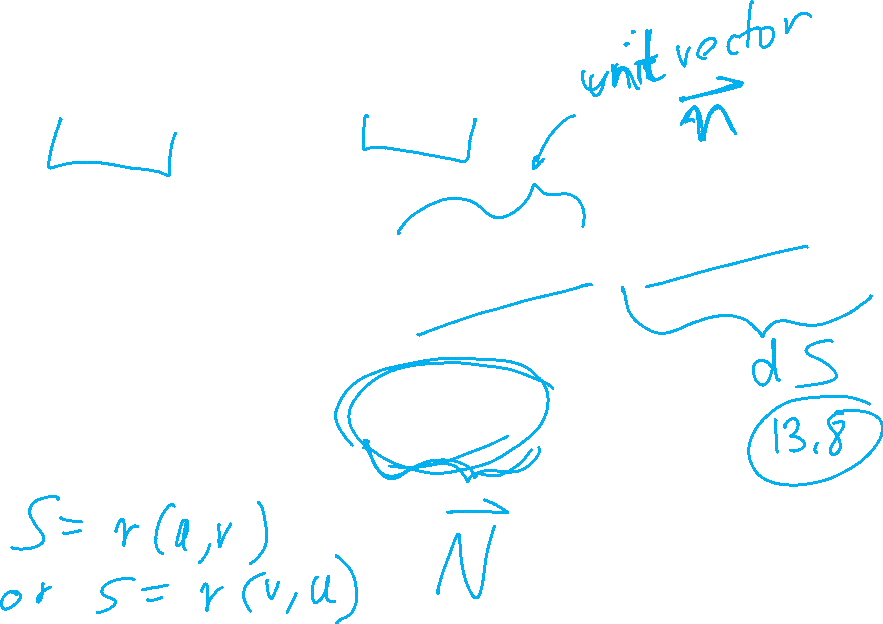 unit vector
n
dS
13.8
N
S = r(u,v)
or S = r(v,u)